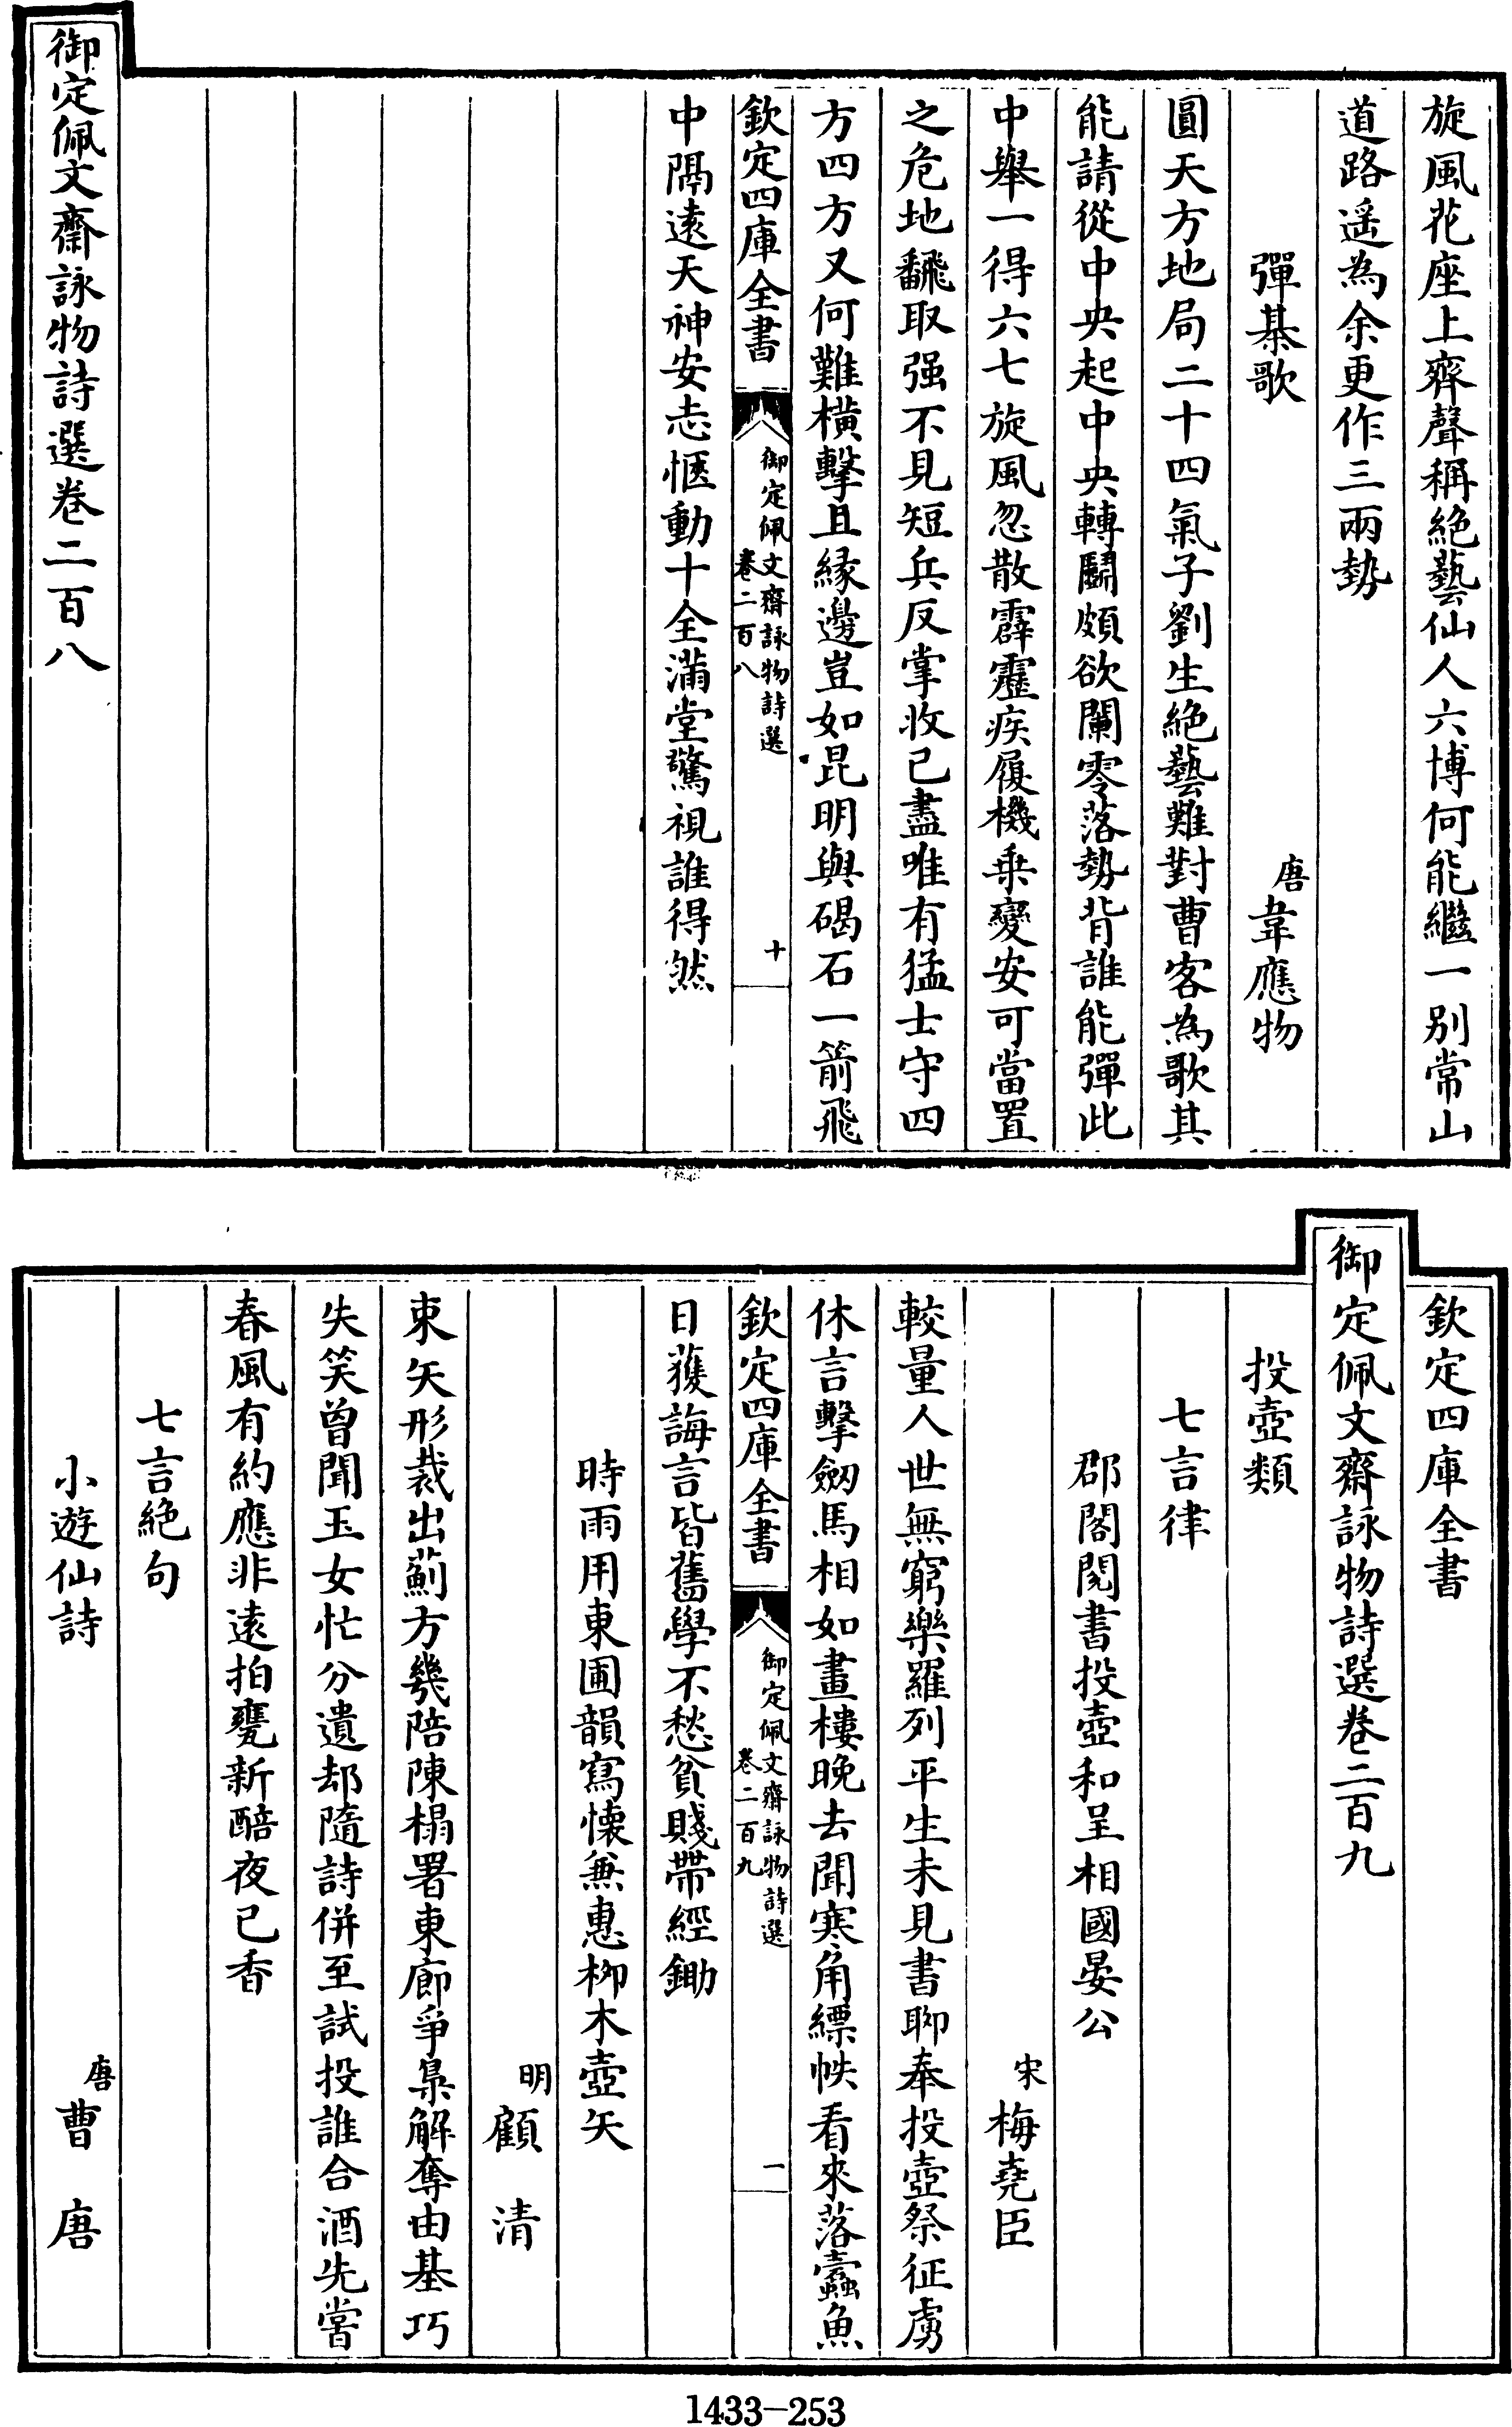 旋風花座上齊聲稱絶藝仙人六博何能繼一别常山
道路遥為余更作三兩勢
彈棊歌
唐韋應物
圓天方地局二十四氣子劉生絶藝難對曹客為歌其
能請從中央起中央轉鬭頗欲闌零落勢背誰能彈此
中舉一得六七旋風忽散霹靂疾履機乗變安可當置
之危地飜取强不見短兵反掌收已盡唯有猛士守四
方四方又何難横擊且縁邊豈如昆明與碣石一箭飛
欽定四庫全書
御定佩文齋詠物詩選
卷二百八
十
中隔遠天神安志愜動十全滿堂驚視誰得然
御定佩文齋詠物詩選卷二百八
欽定四庫全書
御定佩文齋詠物詩選卷二百九
投壺類
七言律
郡閣閱書投壺和呈相國晏公
宋梅堯臣
較量人世無窮樂羅列平生未見書聊奉投壺祭征虜
休言擊劒馬相如畫樓晚去聞寒角縹帙看來落蠹魚
欽定四庫全書
御定佩文齋詠物詩選
卷二百九
一
日獲誨言皆舊學不愁貧賤帶經鋤
時雨用東圃韻寫懐兼惠栁木壺矢
明顧清
束矢形裁出薊方幾陪陳榻署東廊爭梟解奪由基巧
失笑曾聞玉女忙分遺却隨詩併至試投誰合酒先嘗
春風有約應非遠拍甕新醅夜已香
七言絶句
小遊仙詩
唐曹唐
1433—253